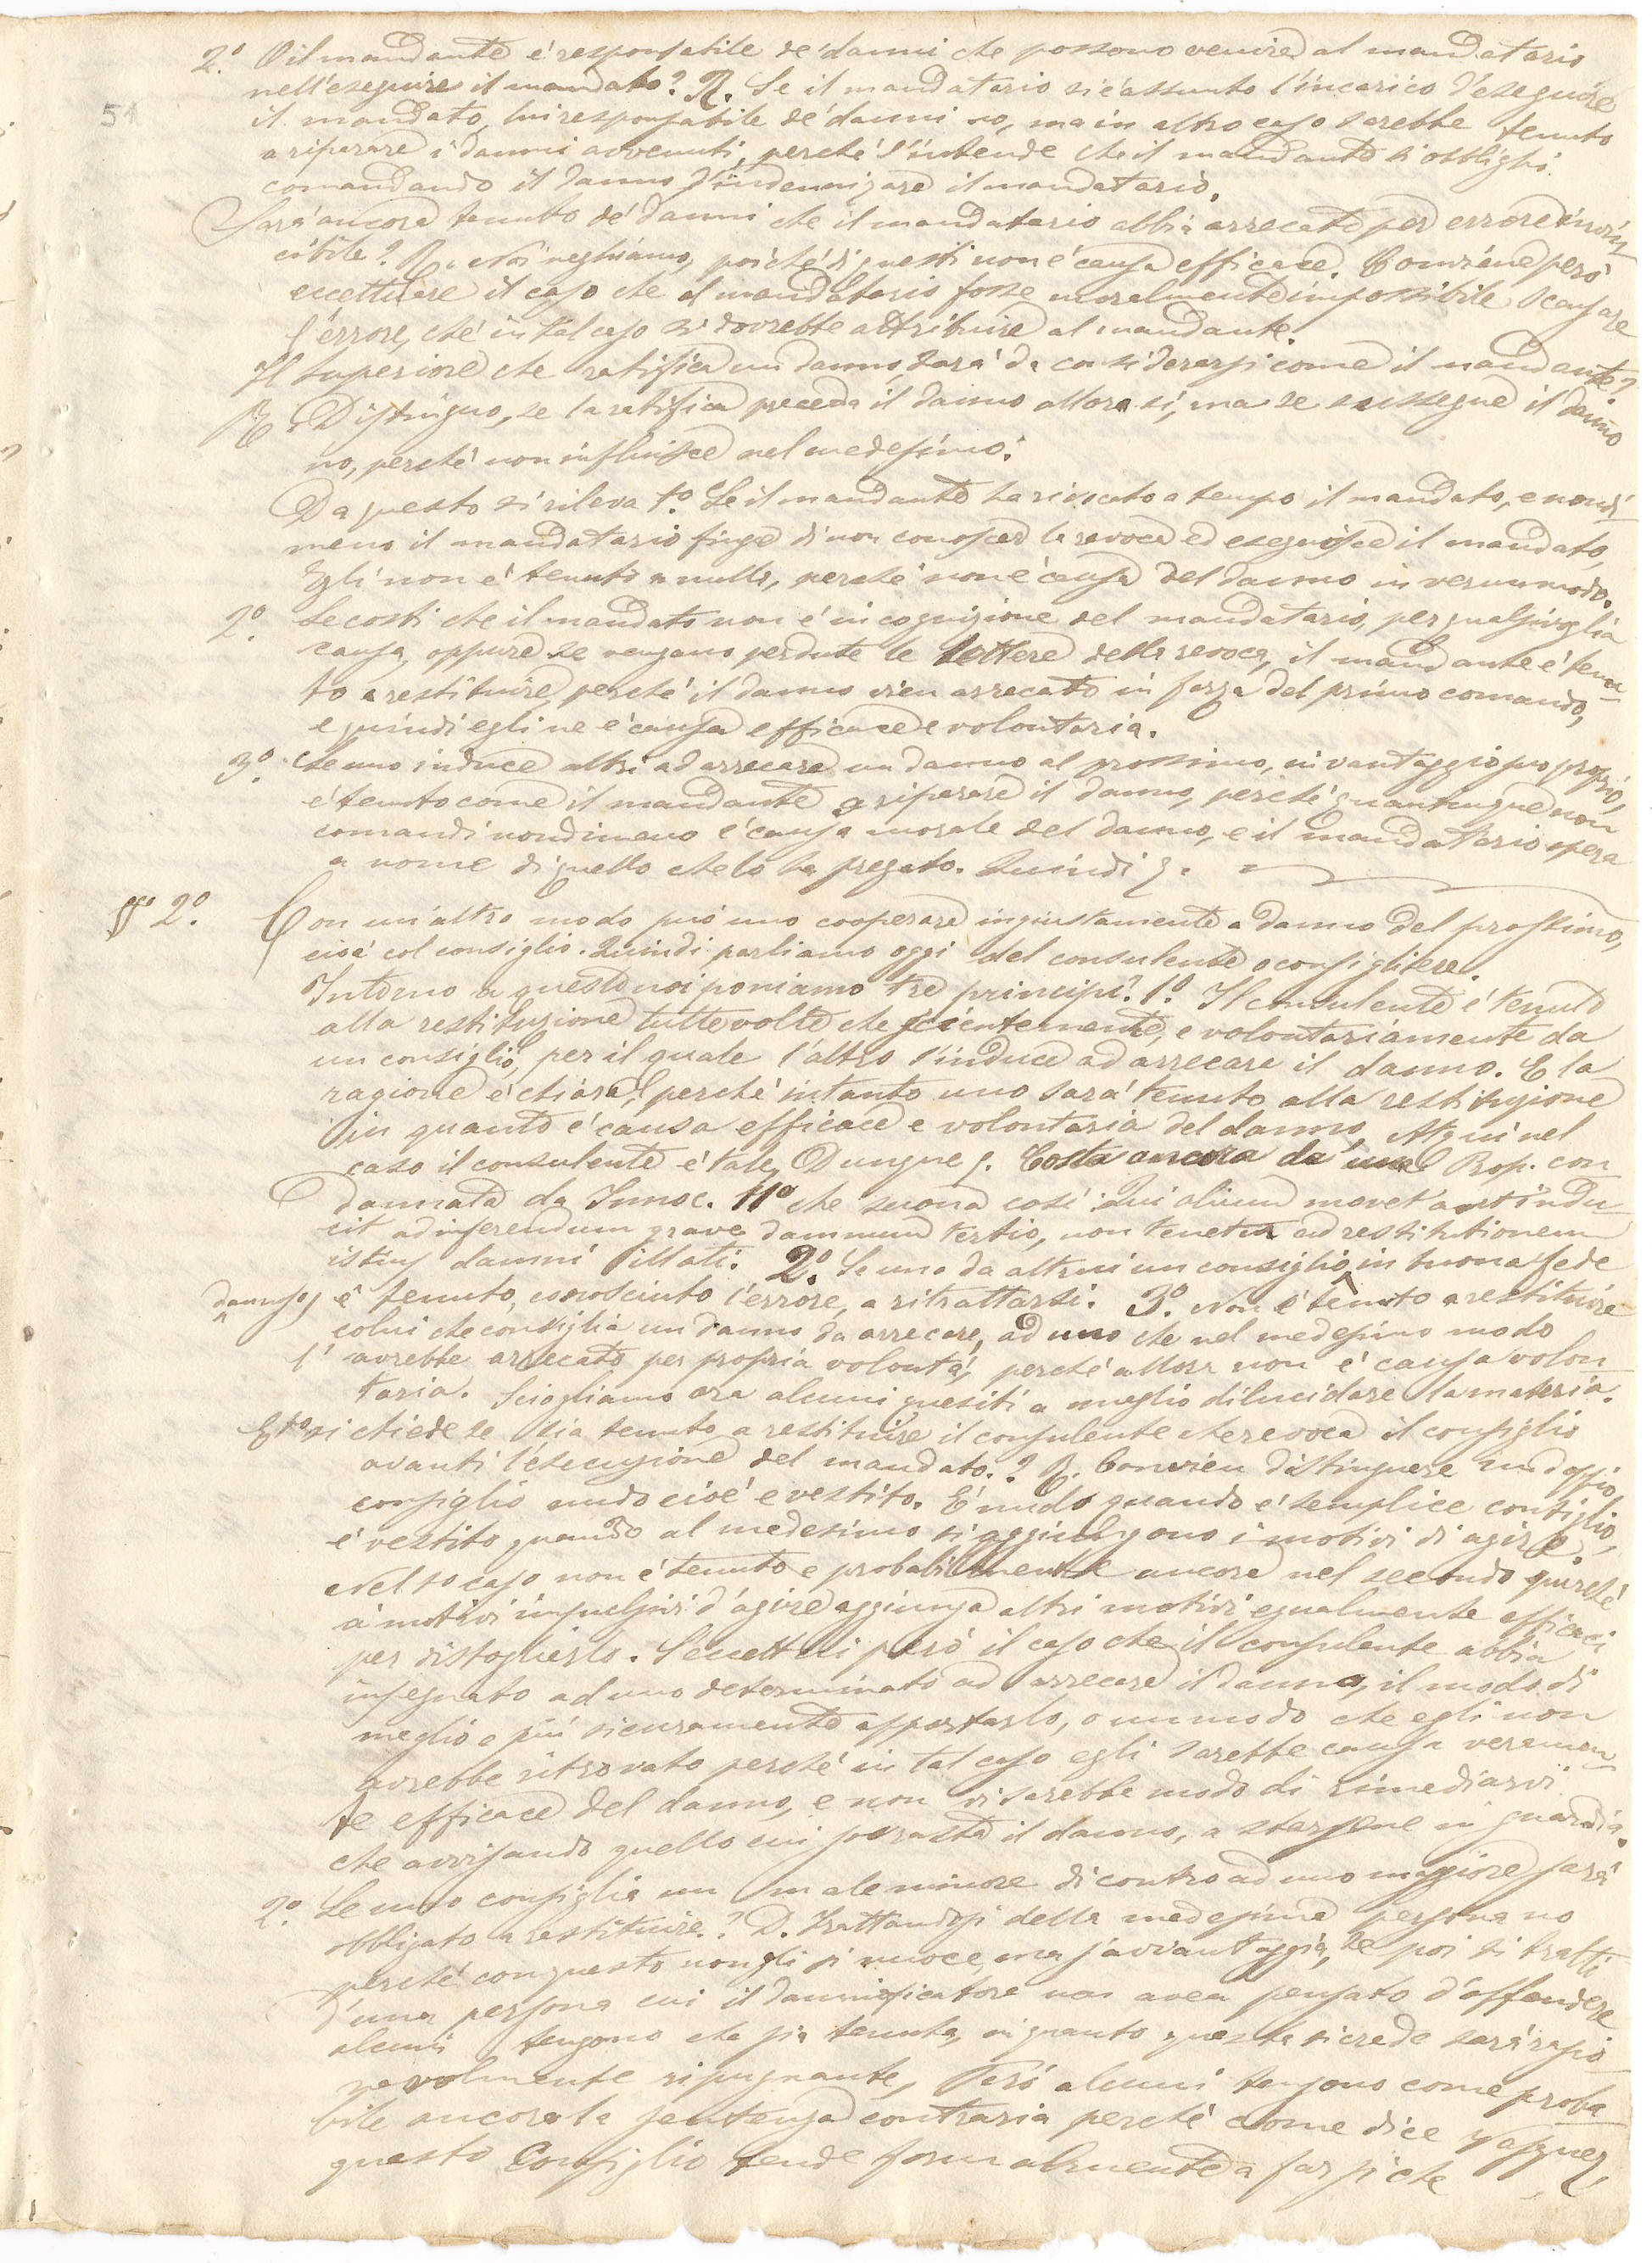 2.° O il mandante é responsabile de' danni che possono venire al mandatario
nell'eseguire il mandato? R. Se il mandatario si é assunto l'incarico d'eseguire
51
il mandato, lui responsabile de' danni no, ma in altro caso sarebbe tenuto
a riparare i danni avvenuti, perché s'intende che il mandante si obblighi
comandando il danno d'indennizare il mandatario.
Sará ancora tenuto de' danni che il mandatario abbia arrecato per errore invin
cibile? R. Noi neghiamo, poiché di questi non é causa efficace. Conviene peró
eccettuare il caso che al mandatario fosse moralmente impossibile scansare
l'errore, ché in tal caso si dovrebbe attribuire al mandante.
Il Superiore che ratifica un danno, sará da considerarsi come il mandante?
R. Distinguo, se la ratifica preceda il danno allora si, ma se sussegue il danno
no, perché non influisce nel medesimo.
Da questo si rileva 1.° Se il mandante ha rivocato a tempo il mandato, e nondi
meno il mandatario finge di non conoscer la revoca ed eseguisce il mandato,
Egli non é tenuto a nulla, perché non é causa del danno in verun modo.
2.° Se costi che il mandato non é in cognizione del mandatario, per qualsivoglia
causa, oppure se vengano perdute le lettere della revoca, il mandante é tenu
to a restituire, perché il danno vien arrecato in forza del primo comando,
e quindi egli ne é causa efficace e volontaria.
3.° Se uno induce altri ad arrecare un danno al prossimo, in vantaggio suo proprio,
é tenuto come il mandante a riparare il danno, perché quantunque non
comandi nondimeno é causa morale del danno, e il mandatario opera
a nome di quello che lo ha pregato. Quindi
§° 2.° Con un'altro modo puó uno cooperare ingiustamente a danno del prossimo,
cioé col consiglio. Quindi parliamo oggi del consulente o consigliere.
Intorno a questo noi poniamo tre principi. 1.° Il consulente é tenuto
alla restituzione tutte volte che scientemente, e volontariamente da
un consiglio, per il quale l'altro s'induce ad arrecare il danno. E la
ragione é chiara, perché intanto uno sará tenuto alla restituzione
in quanto é causa efficace e volontaria del danno, Atqui nel
caso il consulente é tale, Dunque Costa ancora da una Prop. con
dannata da Innoc. 11° che suona cosí: Qui alium movet aut indu
cit ad inferendum grave damnum tertio, non tenetur ad restitutionem
istius damni illati. 2.° Se uno da altrui un consiglio in buona fede
dannoso, é tenuto, conosciuto l'errore, a ritrattarsi. 3.° Non é tenuto a restituire
colui che consiglia un danno da arrecare, ad uno che nel medesimo modo
l'avrebbe arrecato per propria volontá, perché allora non é causa volon
taria. Sciogliamo ora alcuni quesiti a meglio dilucidare la materia.
E 1.° si chiede se sia tenuto a restituire il consulente che revoca il consiglio
avanti l'esecuzione del mandato.? R. Convien distinguere un doppio
consiglio nudo cioé e vestito. É nudo quando é semplice consiglio,
é vestito quando al medesimo si aggiungono i motivi di agire.
Nel 1° caso non é tenuto e probabilmente ancora nel secondo purché
ai motivi impulsivi d'agire aggiunga altri motivi egualmente efficaci
per distoglierlo. Si eccettui peró il caso che il consulente abbia
insegnato ad uno determinato ad arrecare il danno, il modo di
meglio e piú sicuramente apportarlo, o un modo che egli non
avrebbe ritrovato perché in tal caso egli sarebbe causa veramen
te efficace del danno, e non vi sarebbe modo di rimediarvi
che avvisando quello cui sovrasta il danno, a starsene in guardia.
2.° Se uno consiglia un male minore di contro ad uno maggiore sará
obbligato a restituire.? D. Trattandosi della medesima persona no
perché con questo non gli si nuoce, ma s'avvantaggia, se poi si tratti
d'una persona cui il dannificatore non avea pensato d'offendere
alcuni tengono che sia tenuto, in quanto questa si crede sará ragio
nevolmente ripugnante, Peró alcuni tengono come proba
bile ancora la sentenza contraria perché come dice Vasquez,
questo Consiglio tende formalmente a far si che